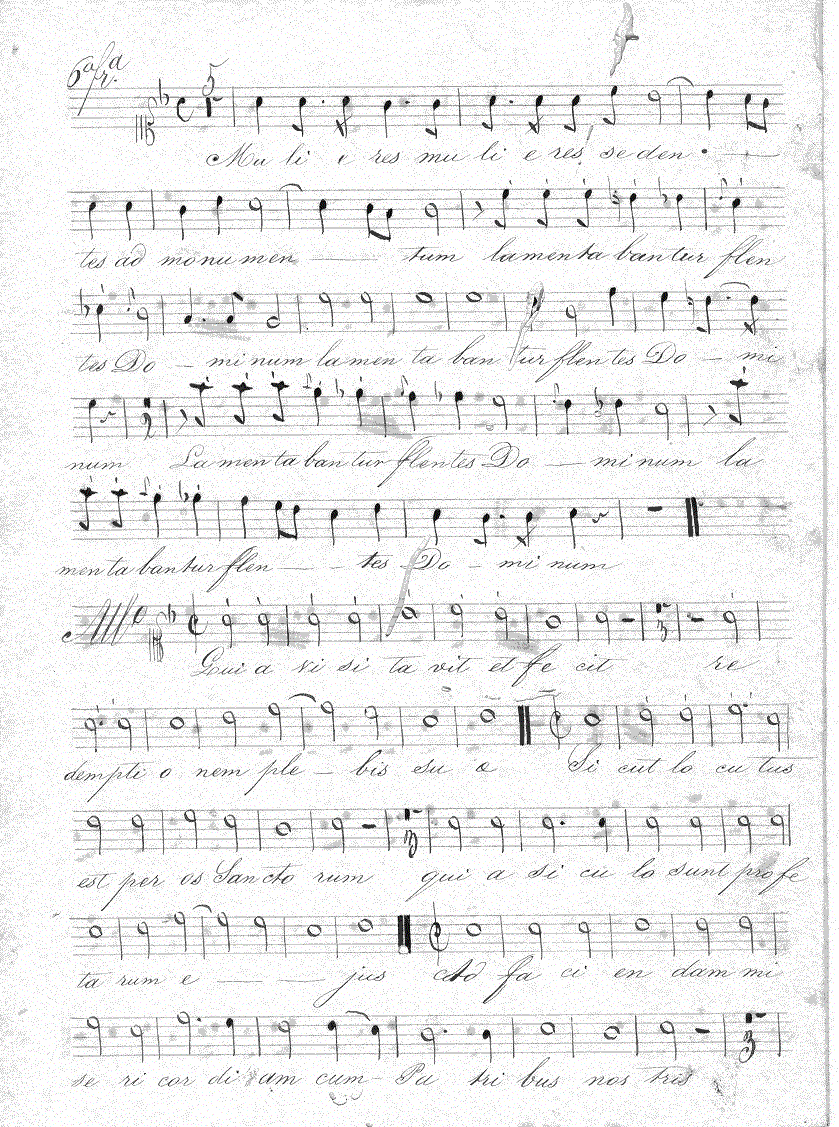 6ª fr.ª
5
Mu li e res mu li e res, se den
tes ad monumen - tum lamentabantur flen
tes Do - minum lamen ta ban tur flentes Do - mi
2
num Lamentabantur flentes Do - minum la
mentabantur flen - - tes Do - mi num
All.o
3
Qui a vi si ta vit et fe cit re
dempti o nem ple - bis su æ Si cut lo cu tus
3
est per os Sancto rum qui a si cu lo sunt profe
ta rum e - - jus Ad fa ci en dam mi
3
se ri cor di am cum Pa tri bus nos tris